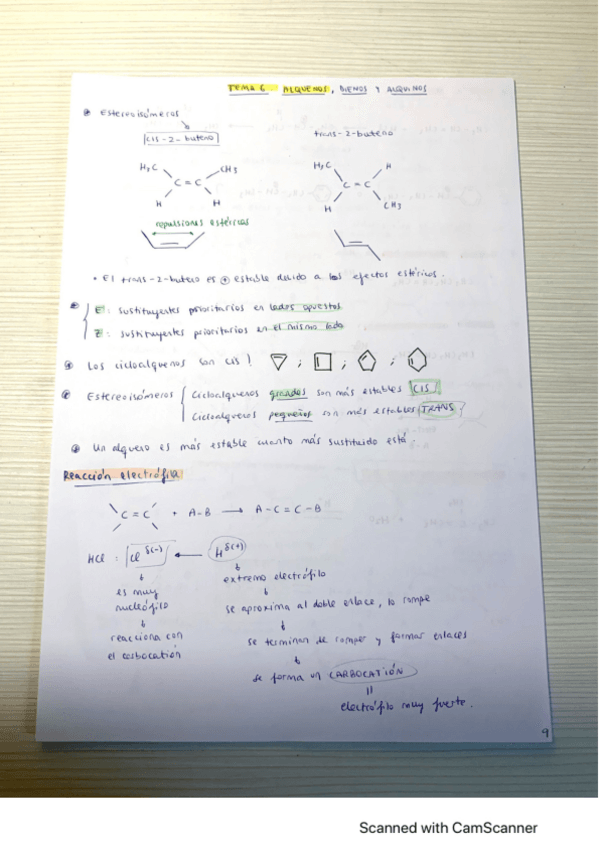 TEMA 6 ALQUENOS, DIENOS Y ALQUINOS
Estereoisómeros
cis-2-buteno
trans-2-buteno
H3C CH3
C = C
H H
H3C H
C = C
H CH3
repulsiones estéricas
• El trans-2-buteno es + estable debido a los efectos estéricos.
E: sustituyentes prioritarios en lados opuestos
Z: sustituyentes prioritarios en el mismo lado
Los cicloalquenos son cis!
; ; ;
Estereoisómeros
Cicloalquenos grandes son más estables CIS
Cicloalquenos pequeños son más estables TRANS
Un alqueno es más estable cuanto más sustituido está.
Reacción electrófila
C = C + A-B → A-C=C-B
HCl : Cl δ(-) ← H δ(+)
es muy nucleófilo
reacciona con el carbocatión
extremo electrófilo
se aproxima al doble enlace, lo rompe
se terminan de romper y formar enlaces
se forma un CARBOCATIÓN
electrófilo muy fuerte.
9
Scanned with CamScanner